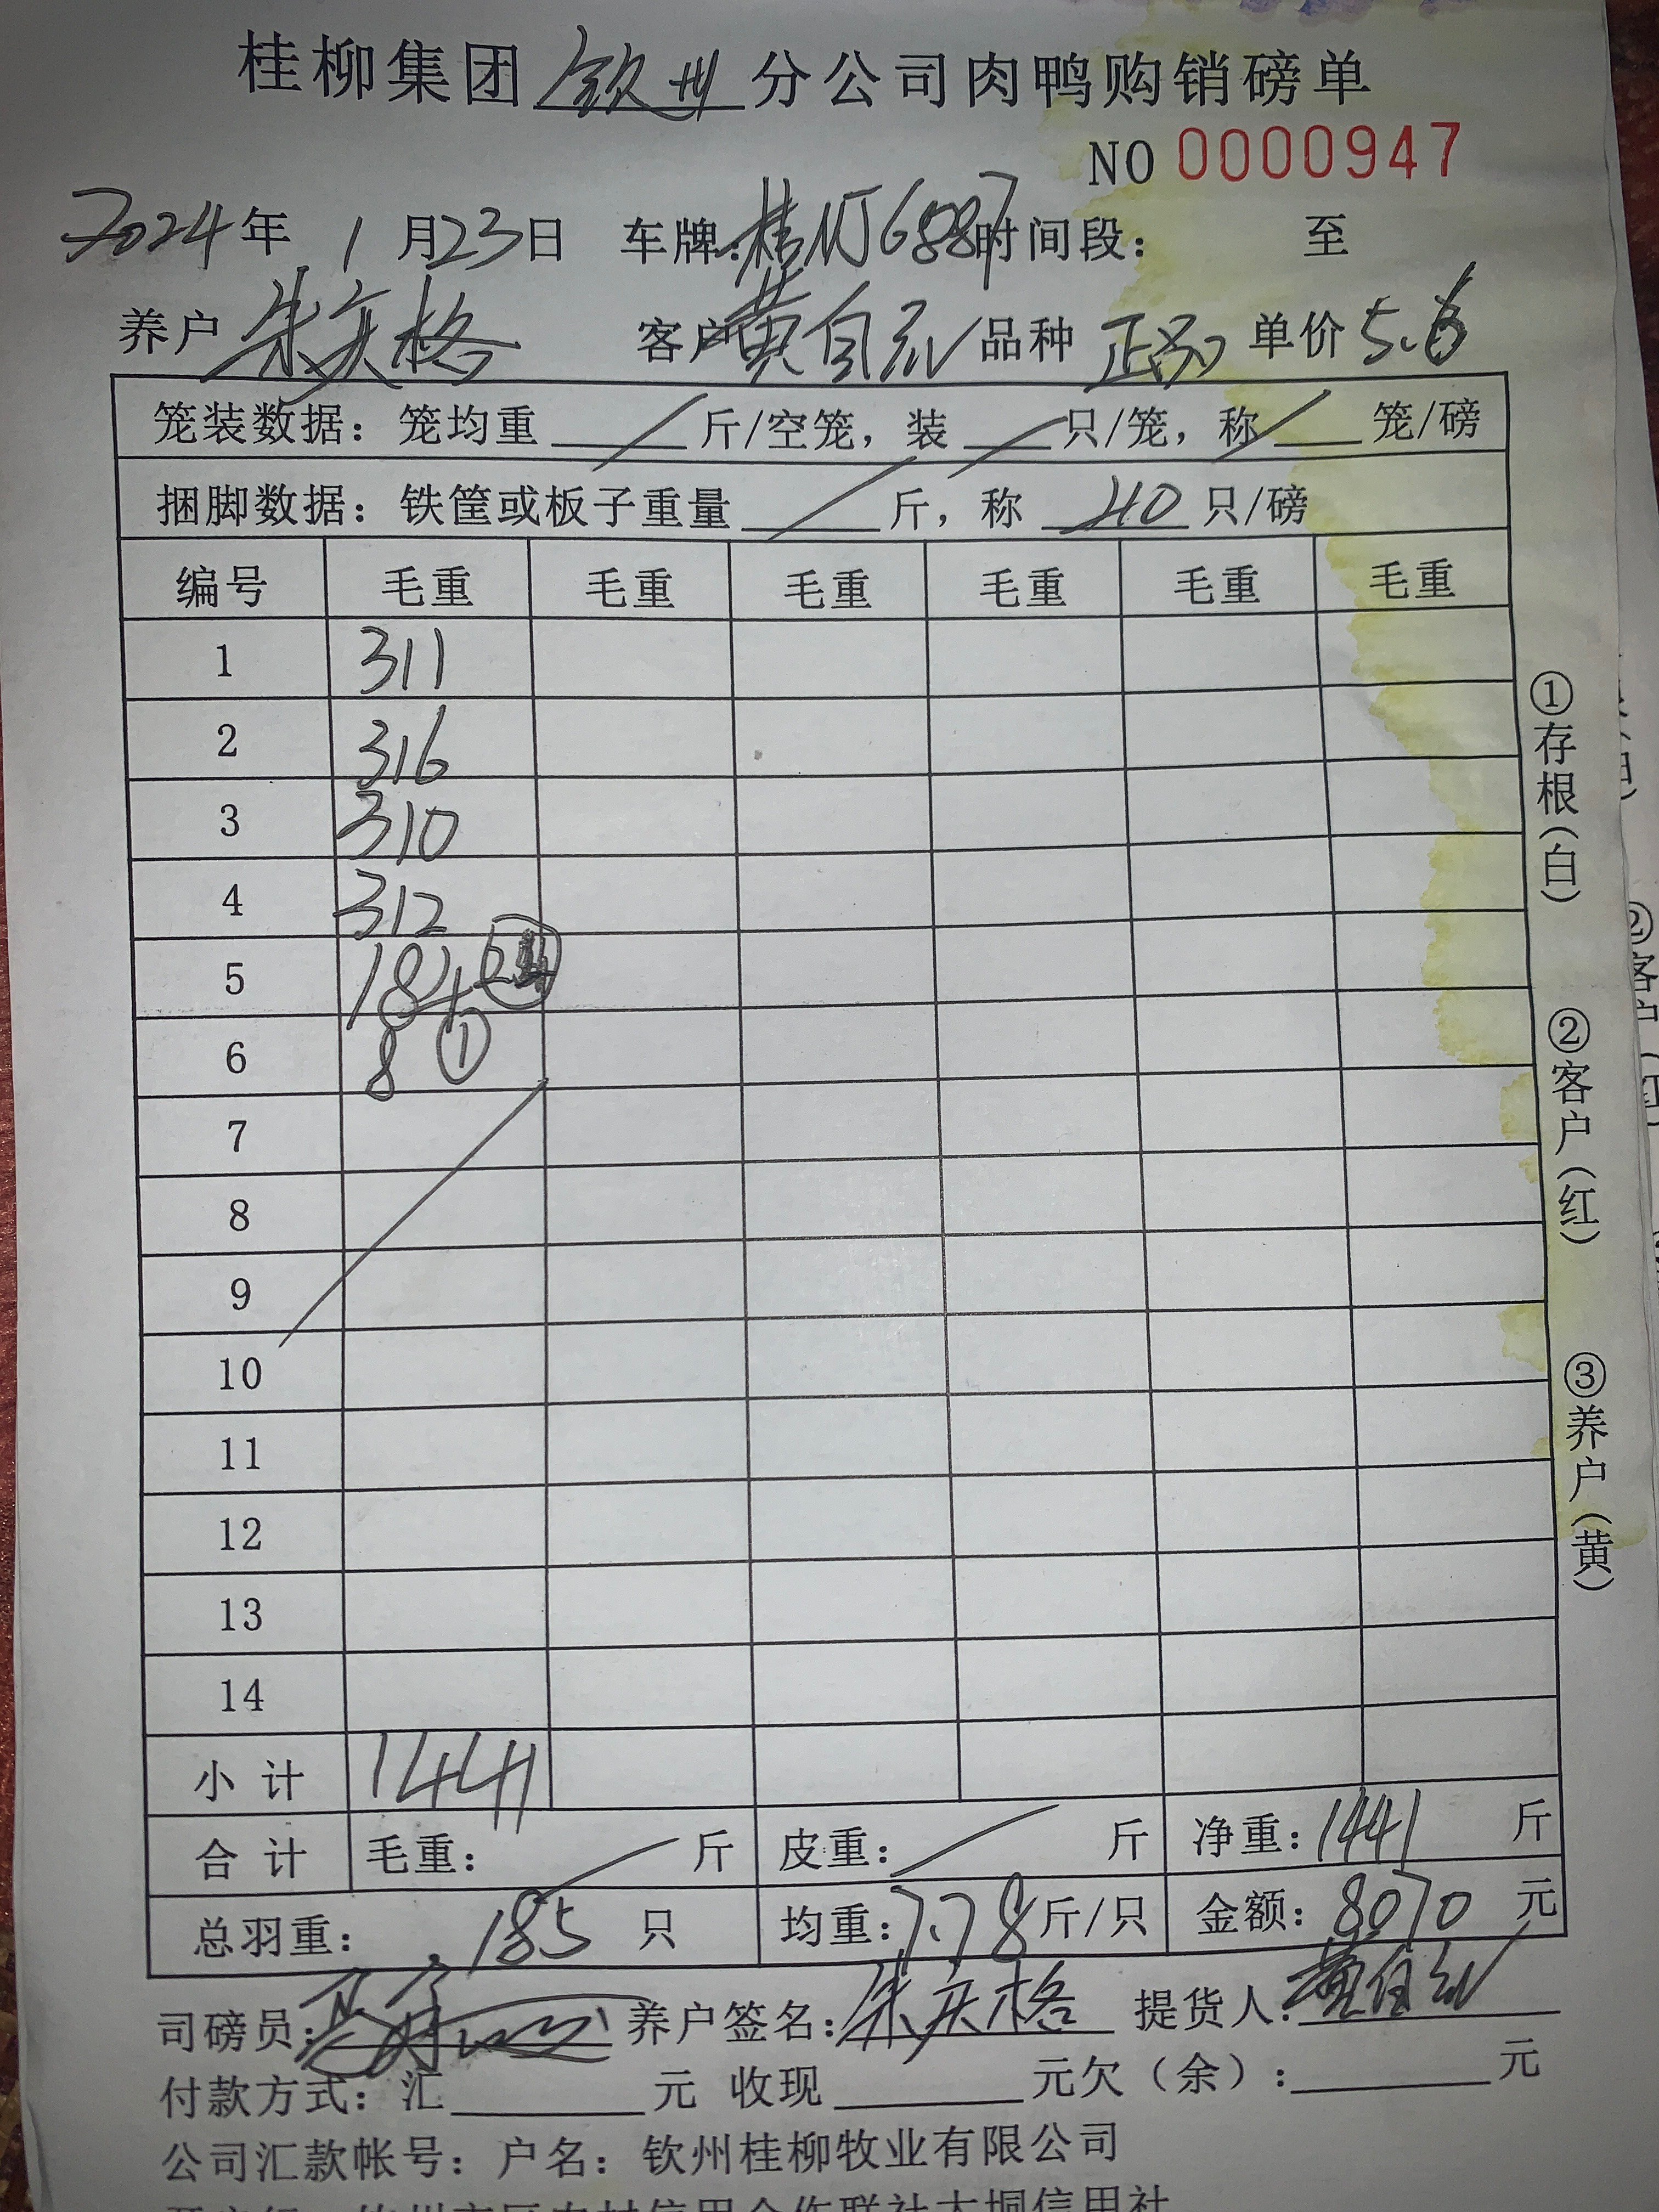 桂柳集团钦州分公司肉鸭购销磅单
NO 0000947
2024年 1月23日 车牌:桂NJ6887时间段: 至
养户 朱庆格 客户 黄自 品种 正 单价 5.6
笼装数据:笼均重 斤/空笼,装 只/笼,称 笼/磅
捆脚数据:铁筐或板子重量 斤,称 40 只/磅
编号 毛重 毛重 毛重 毛重 毛重 毛重
1 311
2 316
3 310
4 312
5 184
6 8 ①
7
8
9
10
11
12
13
14
小计 1441
合计 毛重: 斤 皮重: 斤 净重:1441 斤
总羽重: 185 只 均重:7.78斤/只 金额:8070 元
司磅员: 养户签名:朱庆格 提货人:黄自
付款方式:汇 元 收现 元欠(余): 元
公司汇款帐号:户名:钦州桂柳牧业有限公司
①存根(白) ②客户(红) ③养户(黄)